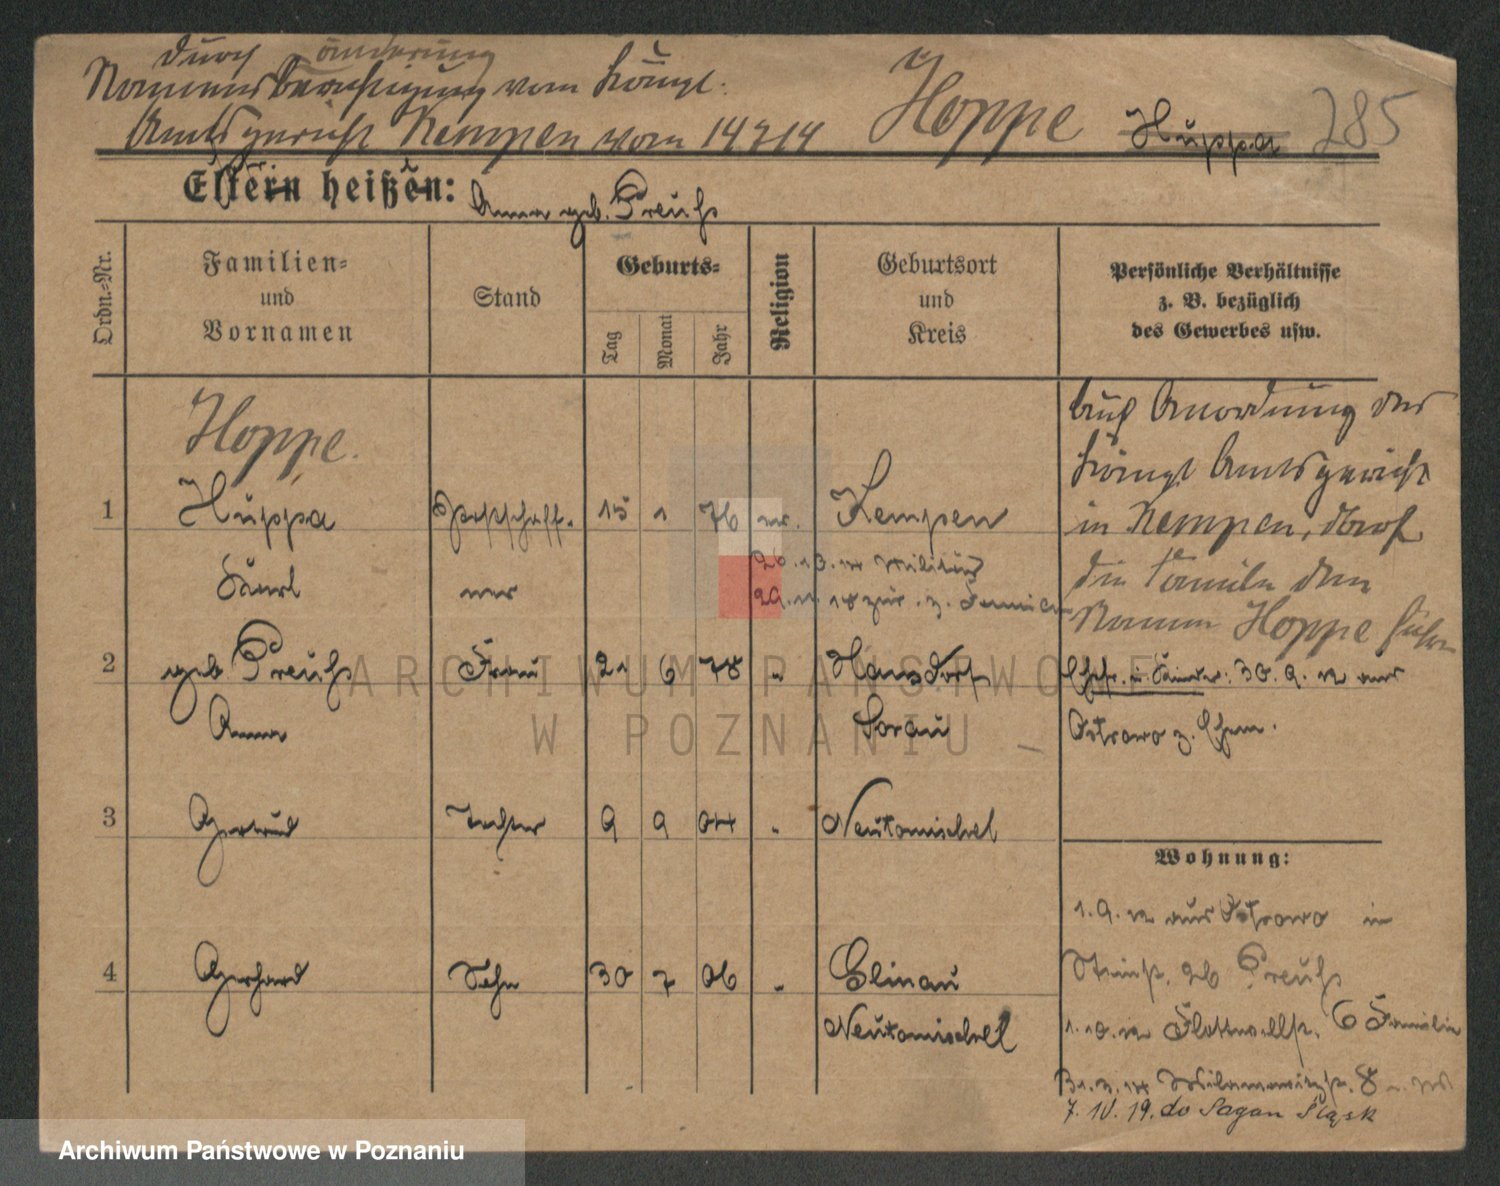 durch änderung
Namensberichtigung vom Königl.
Amtsgericht Kempen vom 14 2 14 Hoppe Huppa 285
Eltern heißen: Anna geb. Preuß
Ordn.-Nr.
Familien-
und
Vornamen
Stand
Geburts-
Tag
Monat
Jahr
Religion
Geburtsort
und
Kreis
Persönliche Verhältnisse
z. B. bezüglich
des Gewerbes usw.
Hoppe.
1 Huppa 15 1 76 ev. Kempen
Karl ner
26.13.14 Militär
29. 18 zur. z. Familie
2 geb Preuß Frau 21 6 78 " Hansdorf
Anna Sorau
3 Gertrud Tochter 9 9 04 " Neutomischel
4 Gerhard Sohn 30 7 06 " Glinau
Neutomischel
Auf Anordnung des
Königl Amtsgericht
in Kempen, darf
die Familie den
Namen Hoppe führen
Ehefr. u. Kinder: 30.9.12 aus
Ostrowo z. Ehem.
Wohnung:
1.9.12 aus Ostrowo in
geb Preuß
1.10.12 Flottwellstr. 6 Familie
8
7. IV. 19. do Sagan Śląsk
ARCHIWUM PAŃSTWOWE
W POZNANIU
Archiwum Państwowe w Poznaniu